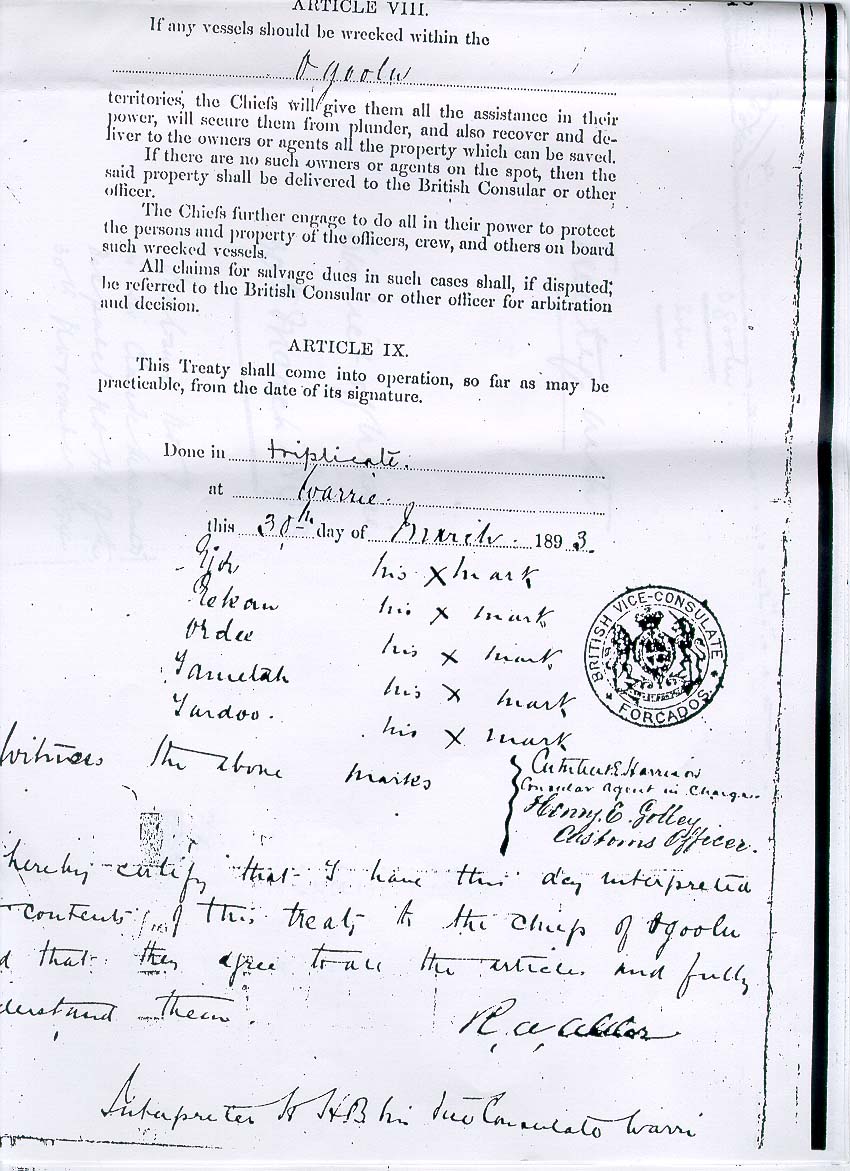 ARTICLE VIII.
If any vessels should be wrecked within the
Ogoolu
territories, the Chiefs will give them all the assistance in their
power, will secure them from plunder, and also recover and de-
liver to the owners or agents all the property which can be saved.
If there are no such owners or agents on the spot, then the
said property shall be delivered to the British Consular or other
officer.
The Chiefs further engage to do all in their power to protect
the persons and property of the officers, crew, and others on board
such wrecked vessels.
All claims for salvage dues in such cases shall, if disputed,
be referred to the British Consular or other officer for arbitration
and decision.
ARTICLE IX.
This Treaty shall come into operation, so far as may be
practicable, from the date of its signature.
Done in triplicate.
at Warrie.
this 30th day of March. 1893.
his X mark
Rekau his X mark
Ordee his X mark
his X mark
his X mark
BRITISH VICE-CONSULATE
FORCADOS
Witness the above marks
Harrison
Consular Agent in Charge
Henry E. Golley
Customs Officer.
hereby certify that I have this day interpreted
contents of this treaty to the chiefs of Ogoolu
d that they agree to all the articles and fully
derstand them.
R. A.
Interpreter H H B Vice Consulate Warri